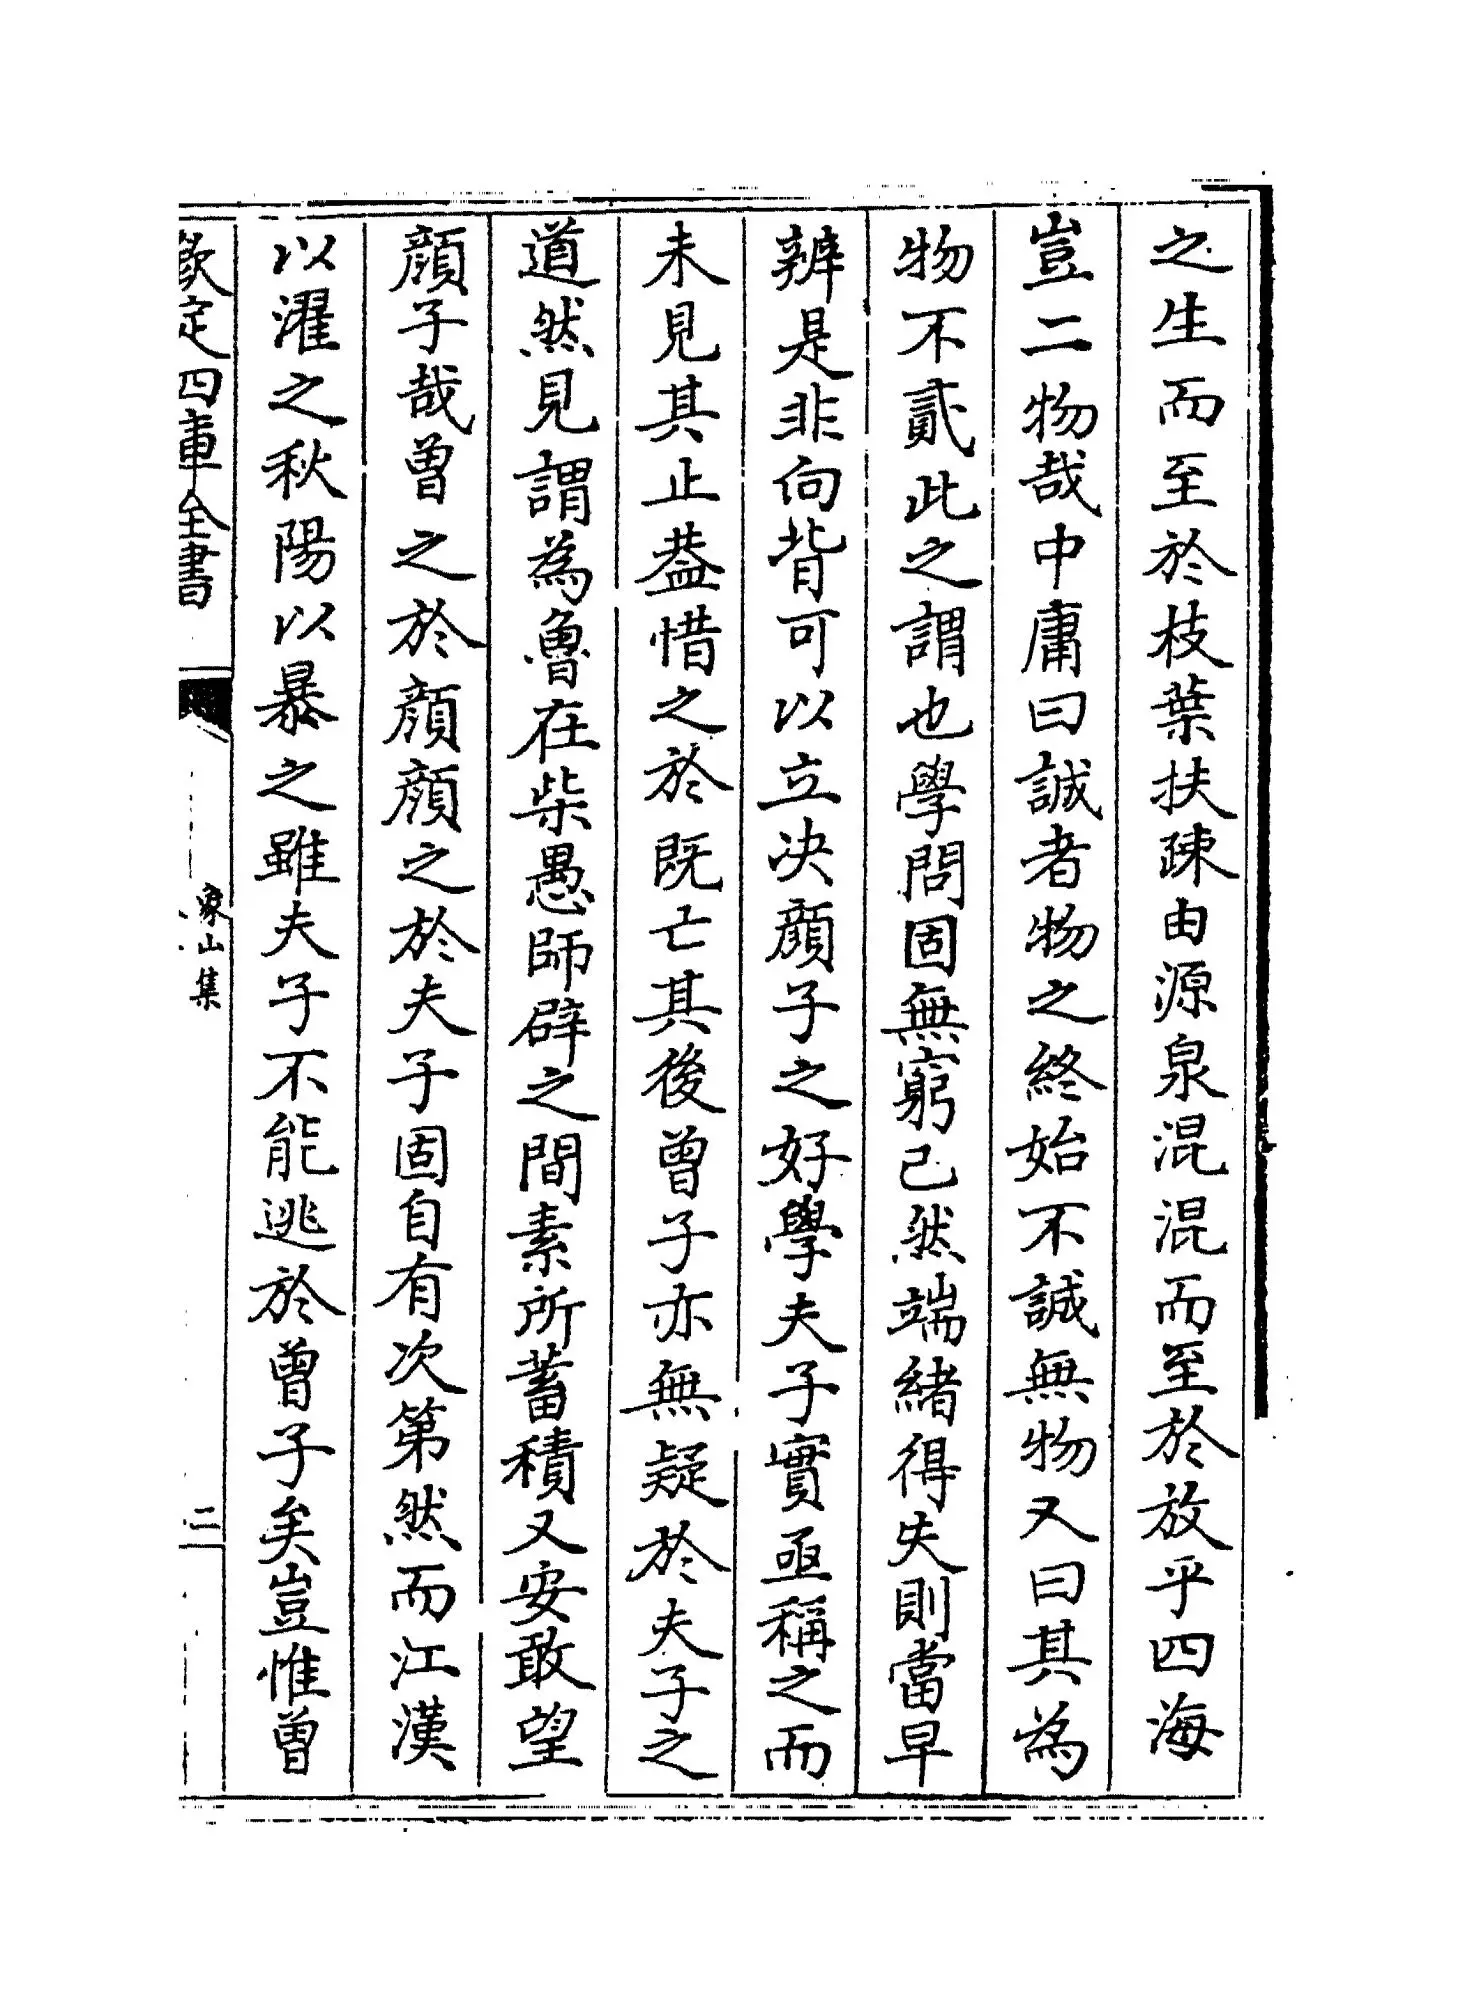 之生而至於枝葉扶疎由源泉混混而至於放乎四海
豈二物哉中庸曰誠者物之終始不誠無物又曰其為
物不貳此之謂也學問固無窮已然端緒得失則當早
辨是非向背可以立决顔子之好學夫子實亟稱之而
未見其止葢惜之於既亡其後曾子亦無疑於夫子之
道然見謂為魯在柴愚師辟之間素所蓄積又安敢望
顔子哉曾之於顔顔之於夫子固自有次第然而江漢
以濯之秋陽以暴之雖夫子不能逃於曾子矣豈惟曾
欽定四庫全書
象山集
二